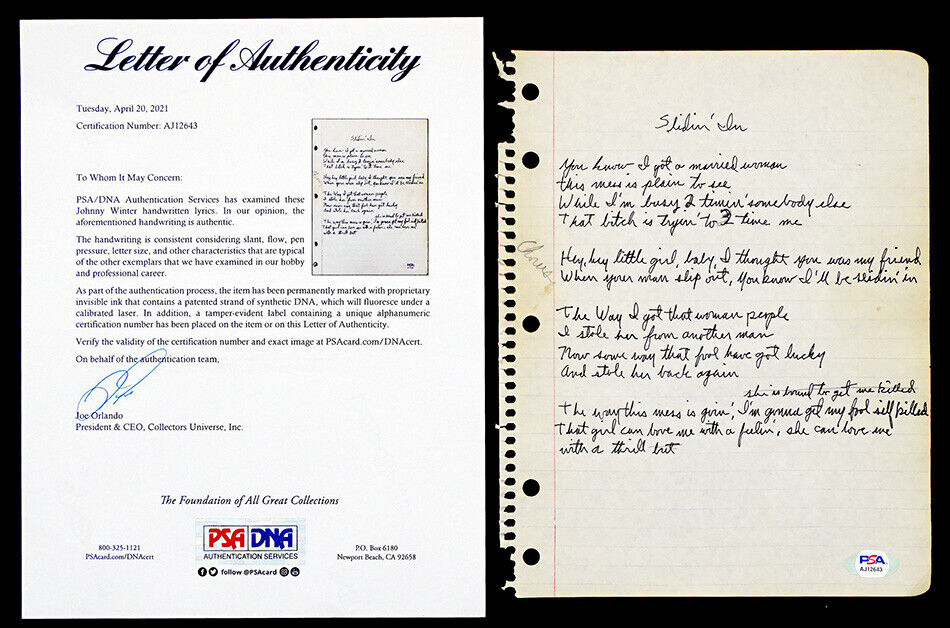 Letter of Authenticity
Tuesday, April 20, 2021
Certification Number: AJ12643
To Whom It May Concern:
PSA/DNA Authentication Services has examined these
Johnny Winter handwritten lyrics. In our opinion, the
aforementioned handwriting is authentic.
The handwriting is consistent considering slant, flow, pen
pressure, letter size, and other characteristics that are typical
of the other exemplars that we have examined in our hobby
and professional career.
As part of the authentication process, the item has been permanently marked with proprietary
invisible ink that contains a patented strand of synthetic DNA, which will fluoresce under a
calibrated laser. In addition, a tamper-evident label containing a unique alphanumeric
certification number has been placed on the item or on this Letter of Authenticity.
Verify the validity of the certification number and exact image at PSAcard.com/DNAcert.
On behalf of the authentication team,
Joe Orlando
President & CEO, Collectors Universe, Inc.
The Foundation of All Great Collections
800-325-1121
PSAcard.com/DNAcert
PSA DNA
AUTHENTICATION SERVICES
follow @PSAcard
P.O. Box 6180
Newport Beach, CA 92658
Slidin' In
You know I got a married woman
this mess is plain to see
While I'm busy 2 timin' somebody else
That bitch is tryin' to 3 time me
Chorus
Hey, hey little girl baby I thought you was my friend
When your man slip out, you know I'll be slidin' in
The Way I got that woman people
I stole her from another man
Now some way that fool have got lucky
And stole her back again
she is bound to get me killed
The way this mess is goin', I'm gonna get my fool self killed
That girl can love me with a feelin', she can love me
with a thrill but
PSA
AJ12643